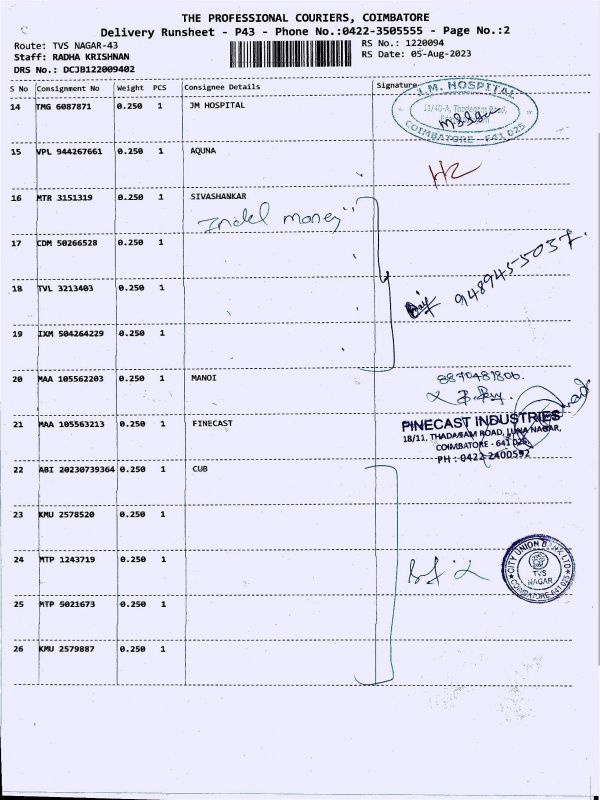 THE PROFESSIONAL COURIERS, COIMBATORE
Delivery Runsheet - P43 - Phone No.:0422-3505555 - Page No.:2
Route: TVS NAGAR-43
RS No.: 1220094
Staff: RADHA KRISHNAN
RS Date: 05-Aug-2023
DRS No.: DCJB122009402
S No Consignment No Weight PCS Consignee Details Signature
14 TMG 6087871 0.250 1 JM HOSPITAL
J.M. HOSPITAL
J1/40-A, Thadagam Road,
COIMBATORE - 641 025
15 VPL 944267661 0.250 1 AQUNA
16 MTR 3151319 0.250 1 SIVASHANKAR
Indel money
17 CDM 50266528 0.250 1
9489455037.
18 TVL 3213403 0.250 1
19 IXM 504264229 0.250 1
20 MAA 105562203 0.250 1 MANOI
8870481806.
21 MAA 105563213 0.250 1 FINECAST
PINECAST INDUSTRIES
18/11, THADAGAM ROAD, LUNA NAGAR,
COIMBATORE - 641 025.
PH : 0422 2400592
22 ABI 20230739364 0.250 1 CUB
23 KMU 2578520 0.250 1
24 MTP 1243719 0.250 1
CITY UNION BANK LTD
TVS
NAGAR
COIMBATORE-641 025
25 MTP 5021673 0.250 1
26 KMU 2579887 0.250 1